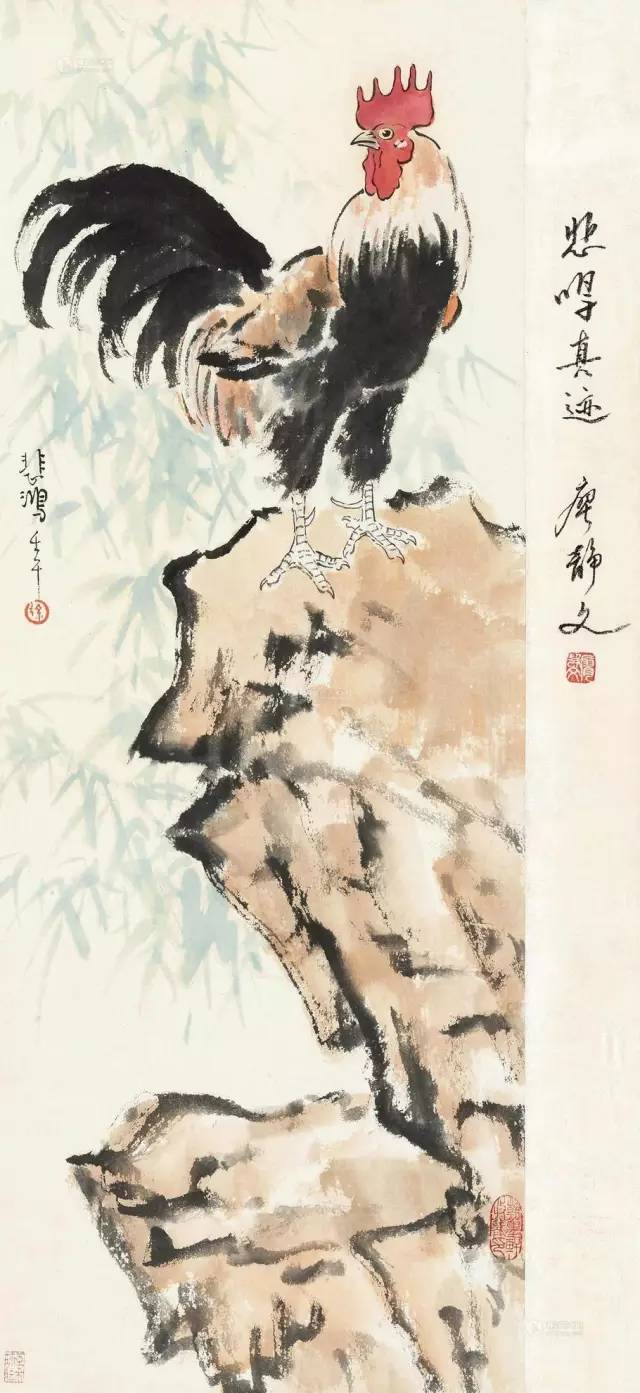 悲鸿真迹 廖静文
悲鸿 壬午
徐